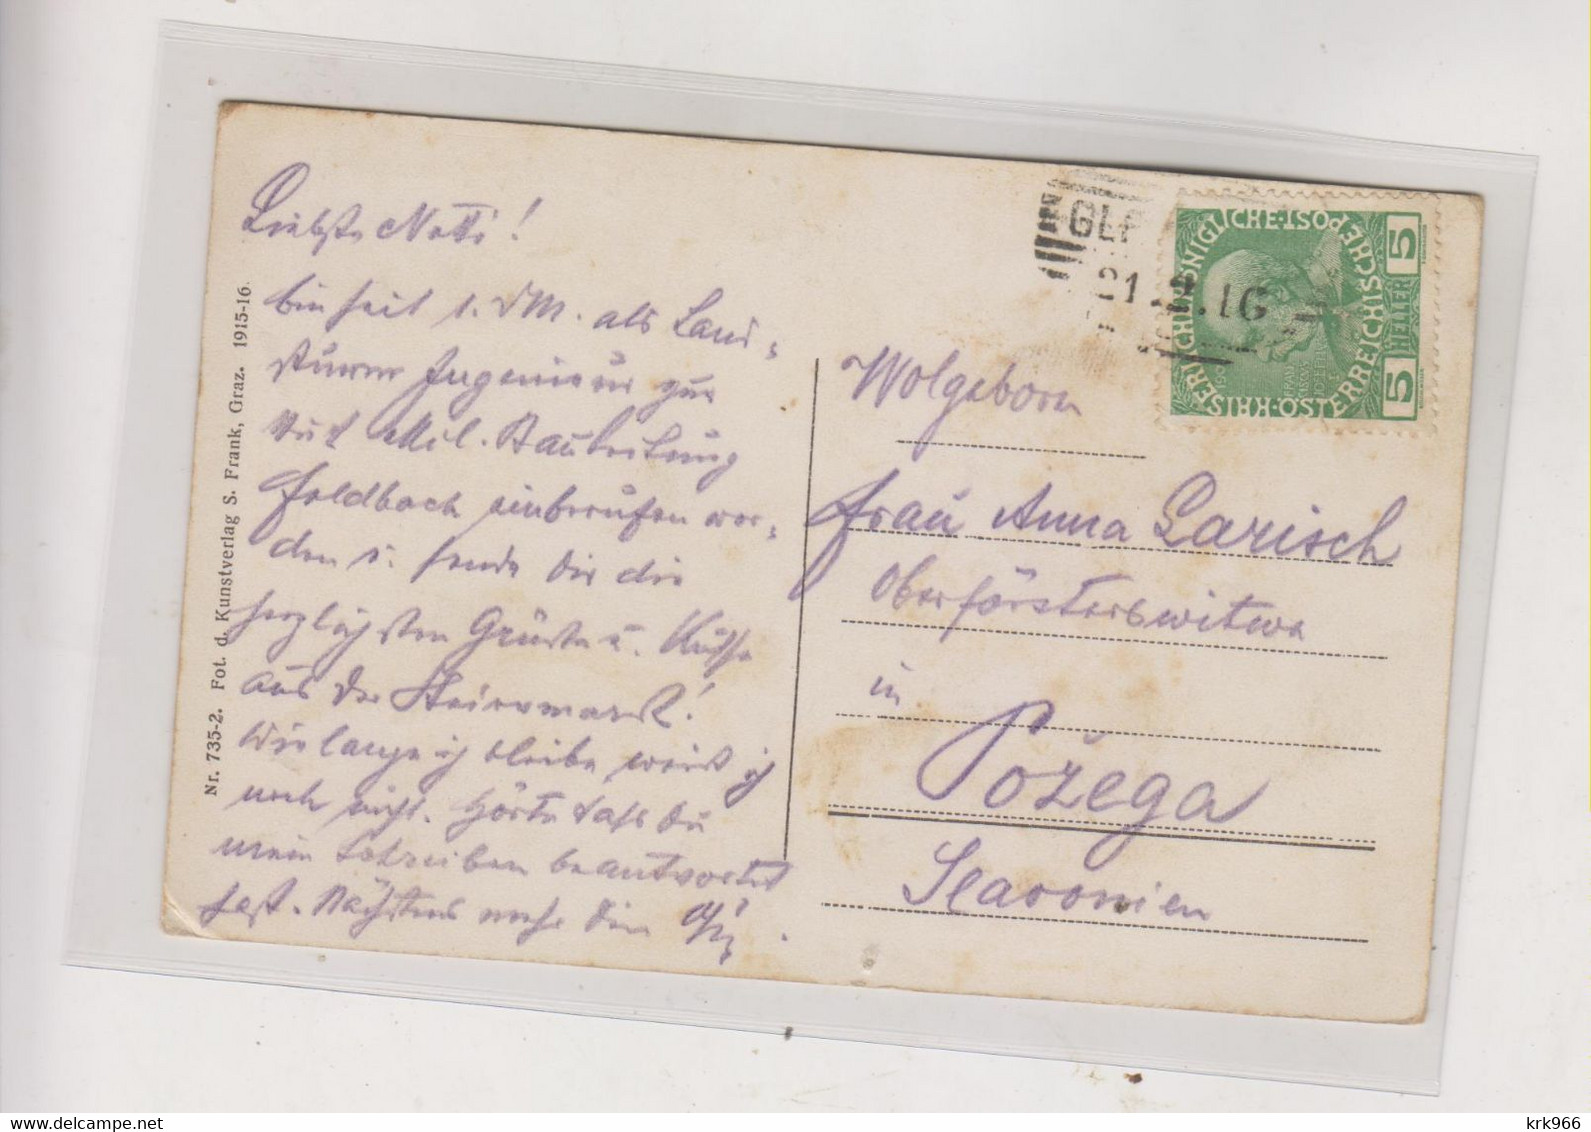 Liebste Netti!
bin seit 1. d M. als Land-
sturm Ingenieur zur
k u k Mil. Bauleitung
Feldbach einberufen wor-
den u. sende Dir die
herzlichsten Grüße u. Küsse
aus der Steiermark!
Wie lange ich bleibe, weiß ich
noch nicht. Hörte daß Du
mein Schreiben beantwortet
hast. Nächstens mehr Dein
Nr. 735-2. Fot. d. Kunstverlag S. Frank, Graz. 1915-16.
GLE
21.2.16
KAISERLICHE KÖNIGLICHE ÖSTERREICHISCHE POST
5 HELLER 5
Wolgeborn
Frau Anna Larisch
Oberförsterswitwe
in
Požega
Slavonien
krk966